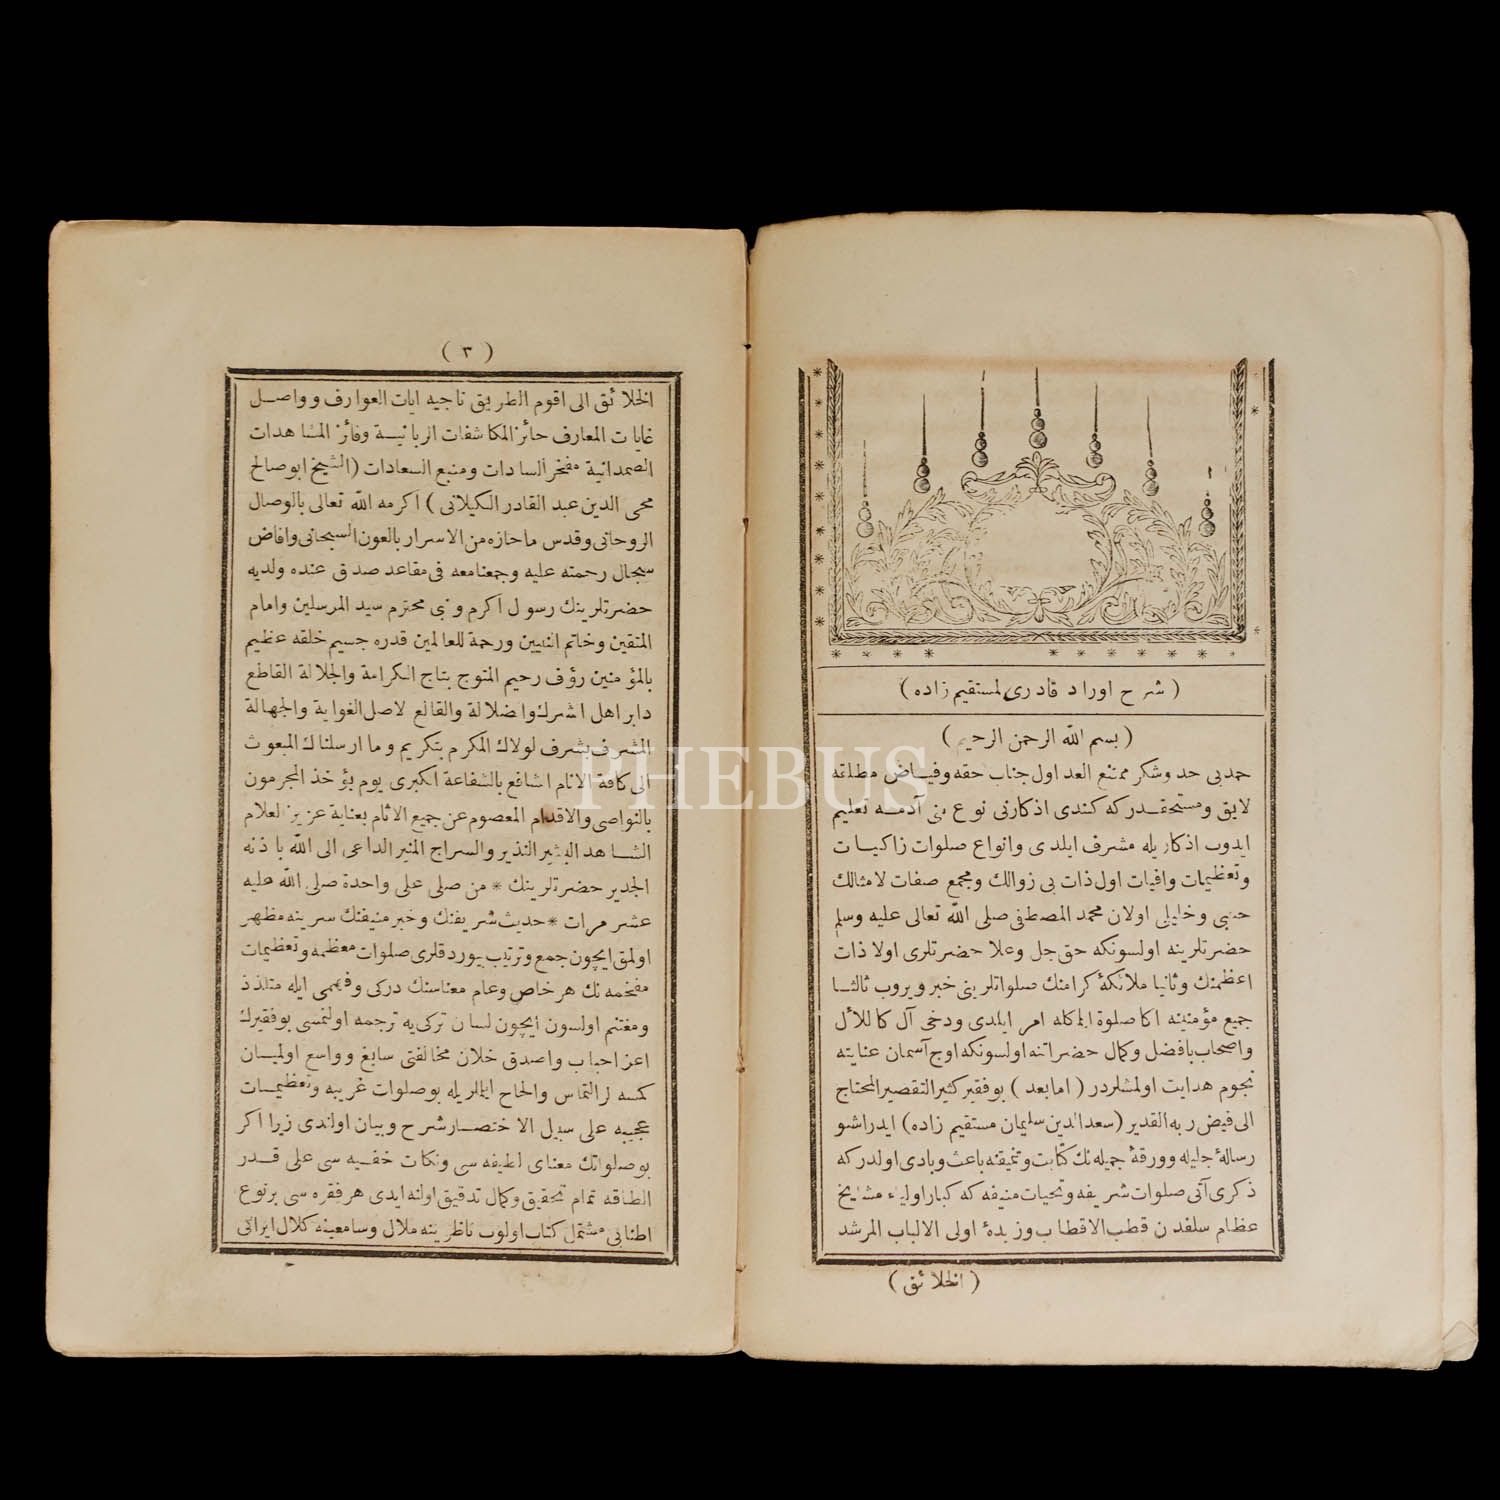 ( شرح اوراد قادرى لمستقيم زاده )
( بسم الله الرحمن الرحيم )
حمد بى حد وشكر ممتنع العد اول جناب حقه وفياض مطلقه
لايق ومستحقدر كه كندى اذكارنى نوع بنى آدمه تعليم
ايدوب اذكاريله مشرف ايلدى وانواع صلوات زاكيات
وتعظيمات وافيات اول ذات بى زوالك ومجمع صفات لامثالك
حبيبى وخليلى اولان محمد المصطفى صلى الله تعالى عليه وسلم
حضرتلرينه اولسونكه حق جل وعلا حضرتلرى اولا ذات
اعظمنك وثانيا ملائكۀ كرامنك صلواتلرينى خبر ويروب ثالثا
جميع مؤمنينه اكا صلوة ايله امر ايلدى ودخى آل كاللأل
واصحاب بافضل وكمال حضراتنه اولسونكه اوج آسمان عنايته
نجوم هدايت اولمشلردر ( اما بعد ) بوفقير كثير التقصير المحتاج
الى فيض ربه القدير ( سعد الدين سليمان مستقيم زاده ) ايدر اشو
رسالۀ جليله وورقۀ جميله نك كتابت وتنميقنه باعث وبادى اولدر كه
ذكرى آتى صلوات شريفه وتحيات منيفه كه كبار اولياء مشايخ
عظام سلفدن قطب الاقطاب وزبدۀ اولى الالباب المرشد
( الخلائق )
( ٣ )
الخلائق الى اقوم الطريق ناجيه ايات العوارف وواصل
غايات المعارف حائز المكاشفات الربانية وفائز المشاهدات
الصمدانية مفخر السادات ومنبع السعادات ( الشيخ ابوصالح
محى الدين عبد القادر الكيلانى ) اكرمه الله تعالى بالوصال
الروحانى وقدس ما حازه من الاسرار بالعون السبحانى وافاض
سجال رحمته عليه وجمعنا معه فى مقاعد صدق عنده ولديه
حضرتلرينك رسول اكرم ونبى محترم سيد المرسلين وامام
المتقين وخاتم النبيين ورحمة للعالمين قدره جسيم خلقه عظيم
بالمؤمنين رؤف رحيم المتوج بتاج الكرامة والجلالة القاطع
دابر اهل الشرك والضلالة والقالع لاصل الغواية والجهالة
المشرف بشرف لولاك المكرم بتكريم وما ارسلناك المبعوث
الى كافة الانام الشافع بالشفاعة الكبرى يوم يؤخذ المجرمون
بالنواصى والاقدام المعصوم عن جميع الاثام بعناية عزيز العلام
الشاهد البشير النذير والسراج المنير الداعى الى الله باذنه
الجدير حضرتلرينك * من صلى على واحدة صلى الله عليه
عشر مرات * حديث شريفنك وخبر منيفنك سرينه مظهر
اولمق ايچون جمع وترتيب بيوردقلرى صلوات معظمه وتعظيمات
مفخمه نك هر خاص وعام معناسنك دركى وفهمى ايله متلذذ
ومغتنم اولسون ايچون لسان تركى يه ترجمه اولنمسى بوفقيرك
اعز احباب واصدق خلان مخالفتى سايغ وواسع اولميان
كمسه لر التماس والحاح ايتملريله بو صلوات غريبه وتعظيمات
عجيبه على سبيل الاختصار شرح وبيان اولندى زيرا اكر
بو صلواتك معناى لطيفه سى ونكات خفيه سى على قدر
الطاقه تمام تحقيق وكمال تدقيق اولنه ايدى هر فقره سى برنوع
اطنابى مشتمل كتاب اولوب ناظرينه ملال وسامعينه كلال ايراثى
PHEBUS